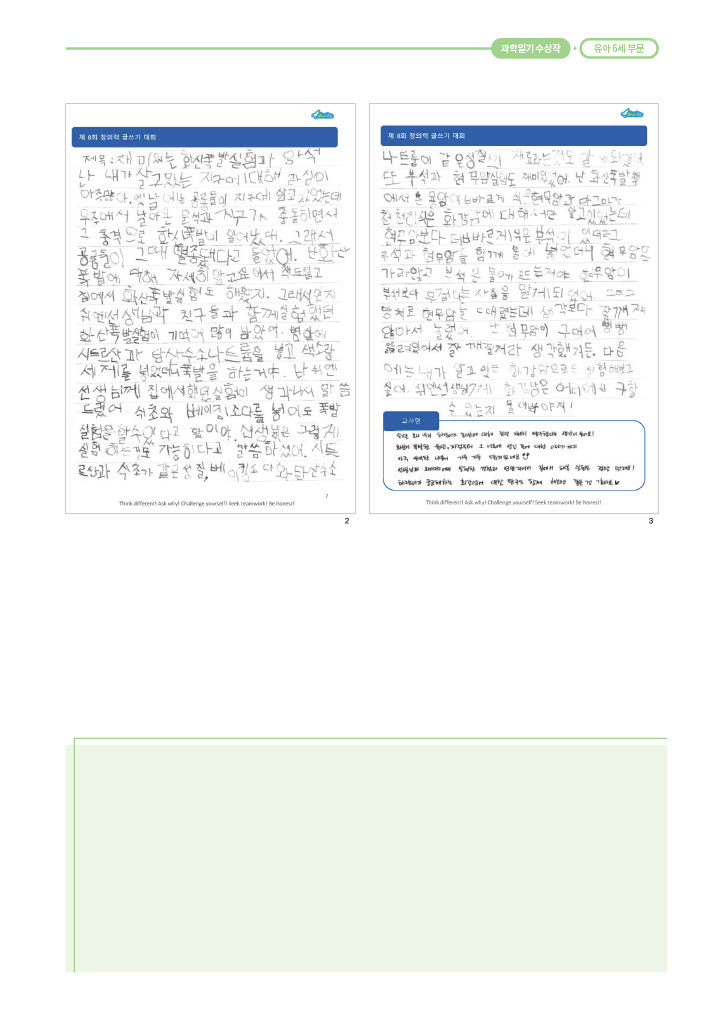 과학일기 수상작
유아 6세 부문
제 8회 창의력 글쓰기 대회
제목:재미있는 화산폭발실험과 암석
난 내가 살고있는 지구에 대해 관심이
아주많다. 옛날에는 공룡들이 지구에 살고 있었는데
우주에서 날아온 운석과 지구가 충돌하면서
그 충격으로 화산폭발이 일어났대. 그래서
공룡들이 그때 멸종됐다고 들었어. 난 화산
폭발에 대해 자세히알고 책도읽고
집에서 화산폭발실험도 해봤지. 그래서인지
쉬엔선생님과 친구들과 함께실험했던
화산폭발실험이 기억에 많이 남았어.
시트르산과 탄산수소나트륨을 넣고 색소랑
세제를 넣었더니폭발을 하는거야. 난 쉬엔
선생님께 집에서했던실험이 생각나서 말씀
드렸어 식초와 베이킹소다를 넣어도 폭발
실험은할수있다고 말이야. 선생님은 그렇게
실험 하는것도 가능하다고 말씀하셨어. 시트
르산과 식초가 같은성질, 베이킹소다와탄산수소
Think different! Ask why! Challenge yourself! Seek teamwork! Be honest!
7
2
제 8회 창의력 글쓰기 대회
나트륨이 같은성질의 재료라는것도 알게되었어
또 부석과 현무암실험도 재미있었어. 난 화산폭발책
에서 는 모양이빠르게 식은현무암과 마그마가
천천히식은 화강암에 대해서만 알고있었는데
현무암보다 더빠르게식은부석이 있더라고
부석과 현무암을 함께 물에 넣었더니 현무암은
가라앉고 부석은 물에 뜨는거야 현무암이
부석보다 무겁다는사실을 알게되었어. 그리고
망치로 현무암을 때렸는데 생각보다 잘깨지
않아서 놀랐어 난 현무암이 구멍이 뻥뻥
뚫려있어서 잘 깨질거라 생각했거든. 다음
에는 내가 알고있는 화강암으로도 실험해보고
싶어. 쉬엔선생님께 화강암은 어디에서 구할
수 있는지 물어봐야지!
교사평
Think different! Ask why! Challenge yourself! Seek teamwork! Be honest!
3